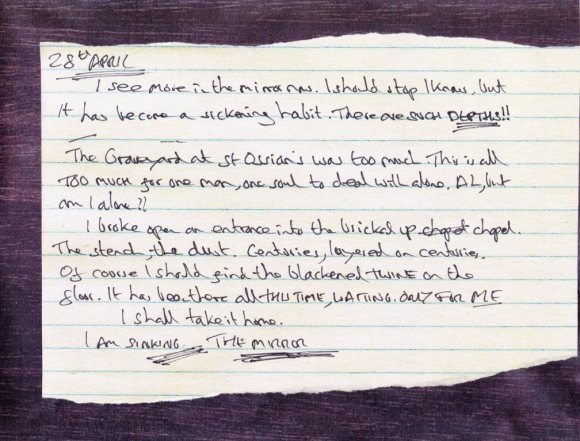 28th APRIL
I see more in the mirror now. I should stop I know, but
it has become a sickening habit. There are SUCH DEPTHS!!
The Graveyard at St Ossian's was too much This is all
TOO MUCH for one man, one soul to deal with alone. but
am I alone??
I broke open an entrance into the bricked up chapel chapel.
The stench, the dust. Centuries, layered on centuries.
Of course I should find the blackened TWINE on the
floor. It has been there all THIS TIME, WAITING. ONLY FOR ME
I shall take it home.
I AM SINKING THE MIRROR